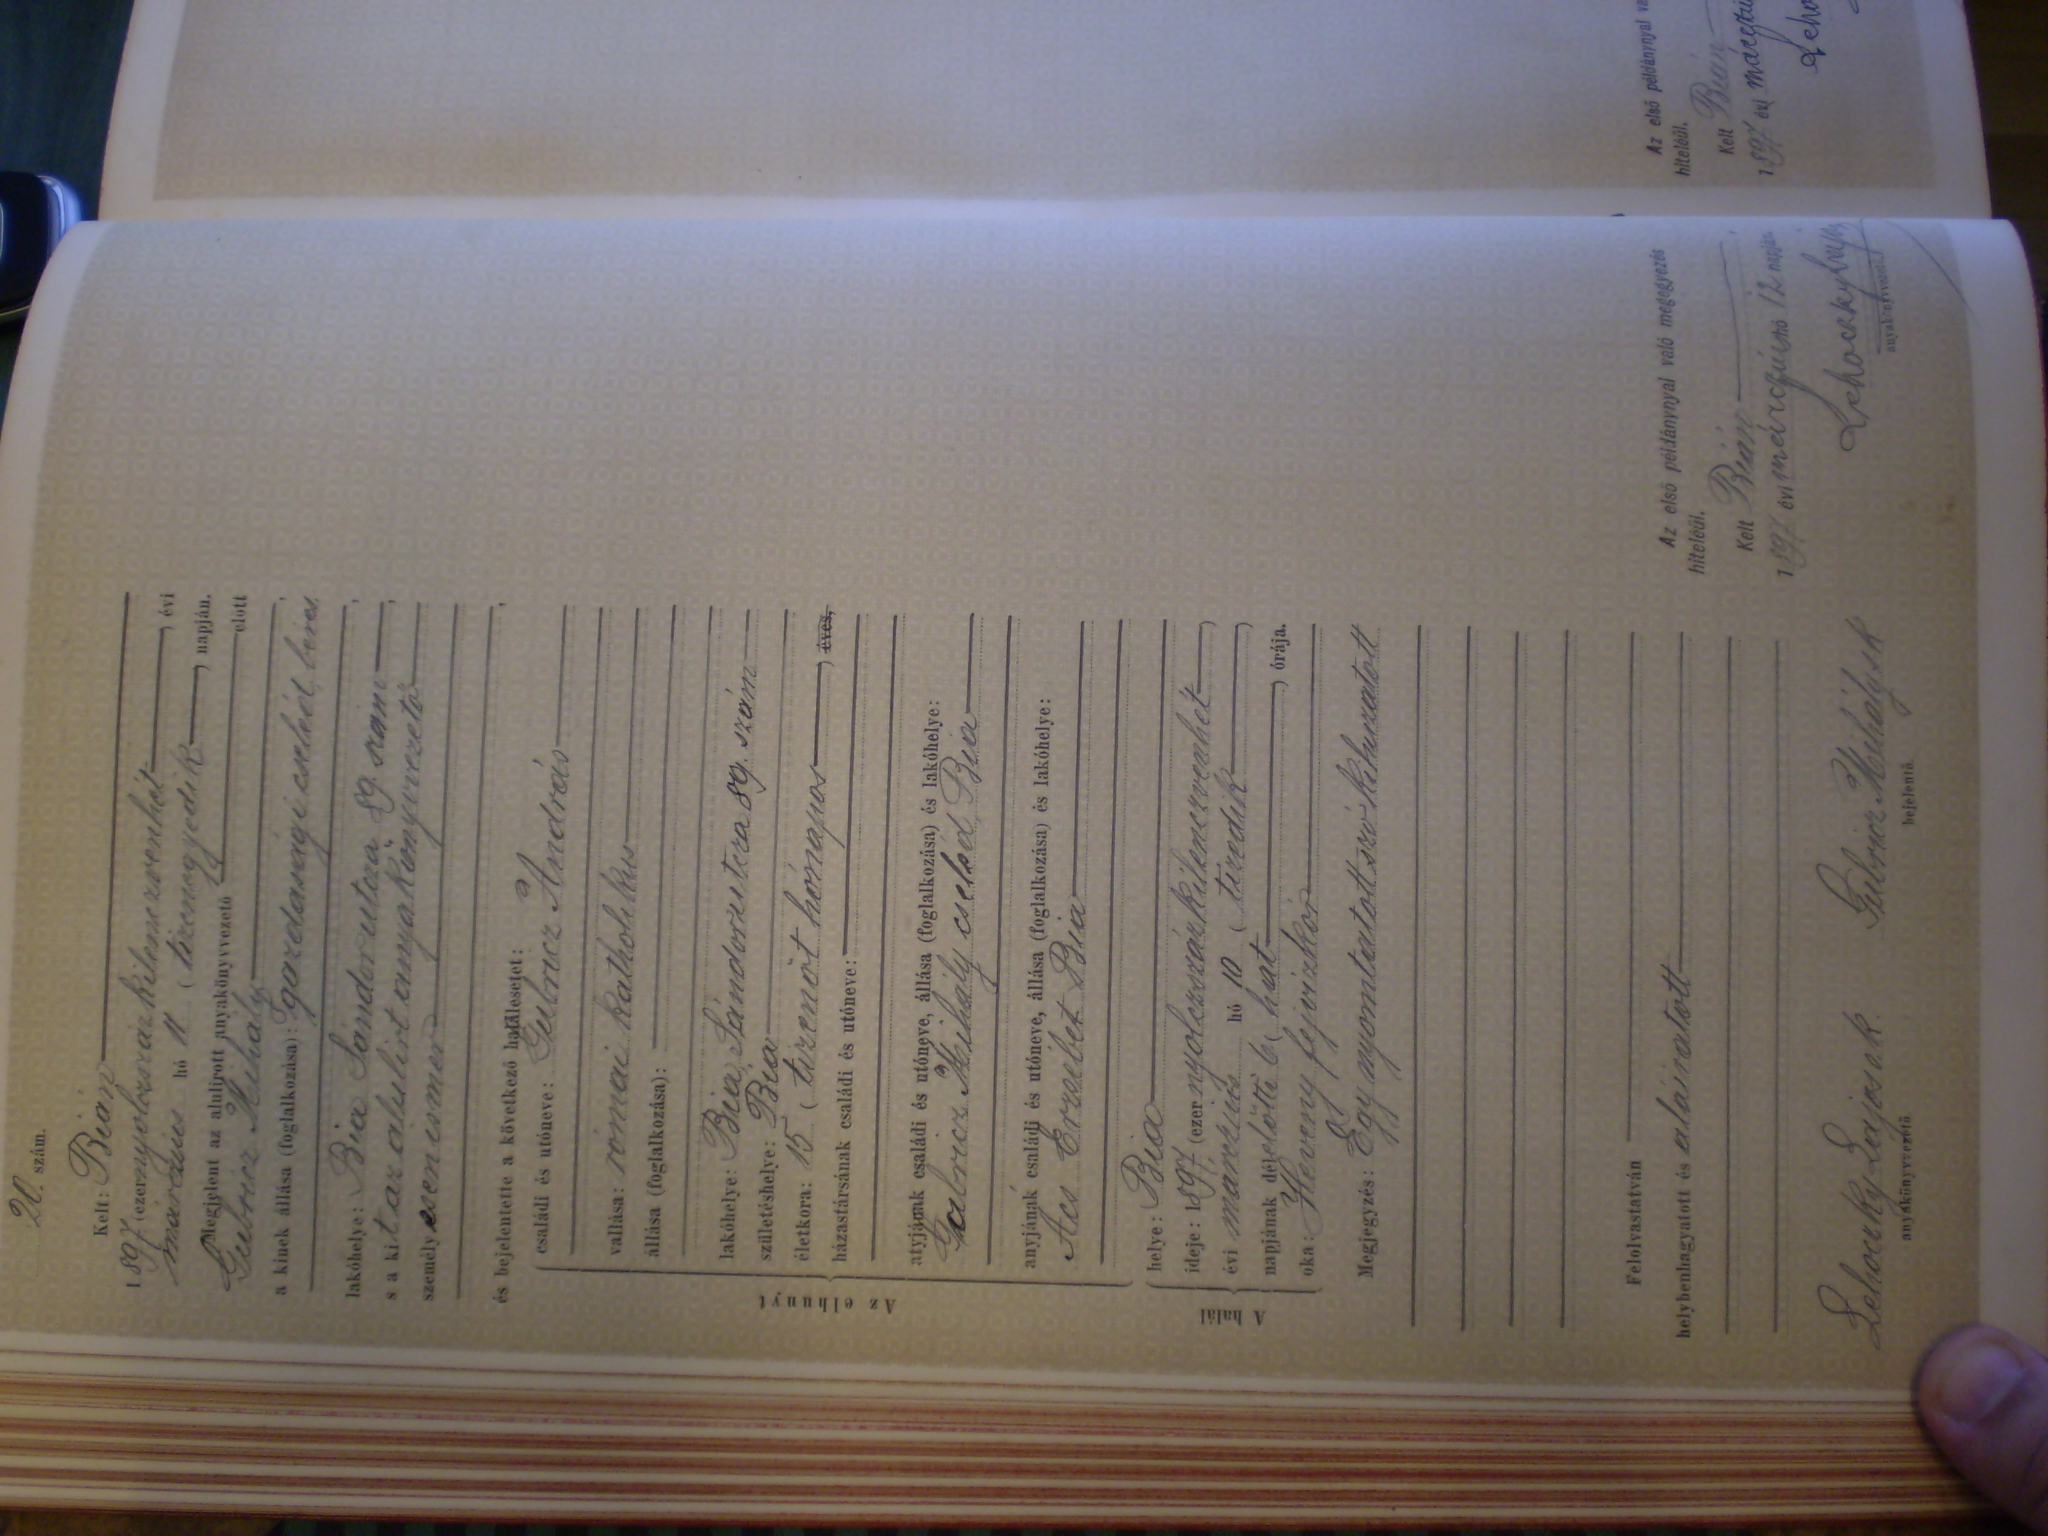 20. szám.
Kelt: Bián
1897 (ezernyolcszázkilenczvenhét), évi
márczius hó 11 (tizenegyedik), napján.
Megjelent az alulirott anyakönyvvezető előtt
Gubricz Mihály,
a kinek állása (foglalkozása): gazdasági cseléd, béres,
lakóhelye: Bia Sándorutcza 89. szám,
s a kit az alulirt anyakönyvvezető,
személyesen ismer
és bejelentette a következő halálesetet:
Az elhunyt
családi és utóneve: Gubricz András
vallása: római katholikus
állása (foglalkozása):
lakóhelye: Bia, Sándorutcza 89. szám
születéshelye: Bia
életkora: 15 (tizenöt hónapos), éves,
házastársának családi és utóneve:
atyjának családi és utóneve, állása (foglalkozása) és lakóhelye:
Gubricz Mihály cseléd, Bia
anyjának családi és utóneve, állása (foglalkozása) és lakóhelye:
Acs Erzsébet Bia
A halál
helye: Bia
ideje: 1897 (ezernyolczszázkilenczvenhét),
évi marczius hó 10 (tizedik),
napjának délelőtti 6 (hat), órája.
oka: Heveny fejvizkór
Megjegyzés: Egy nyomtatott szó kihuzatott
Felolvastatván
helybenhagyatott és aláiratott
Lehoczky Lajos s. k. Gubricz Mihály s k
anyakönyvvezető bejelentő.
Az első példánynyal való megegyezés
hiteléül.
Kelt Bián
1897 évi márczius hó 12 napján
Lehoczky Lajos
anyakönyvvezető.
Az első példánynyal va
hiteléül.
Kelt Bián
1897 évi
Leho